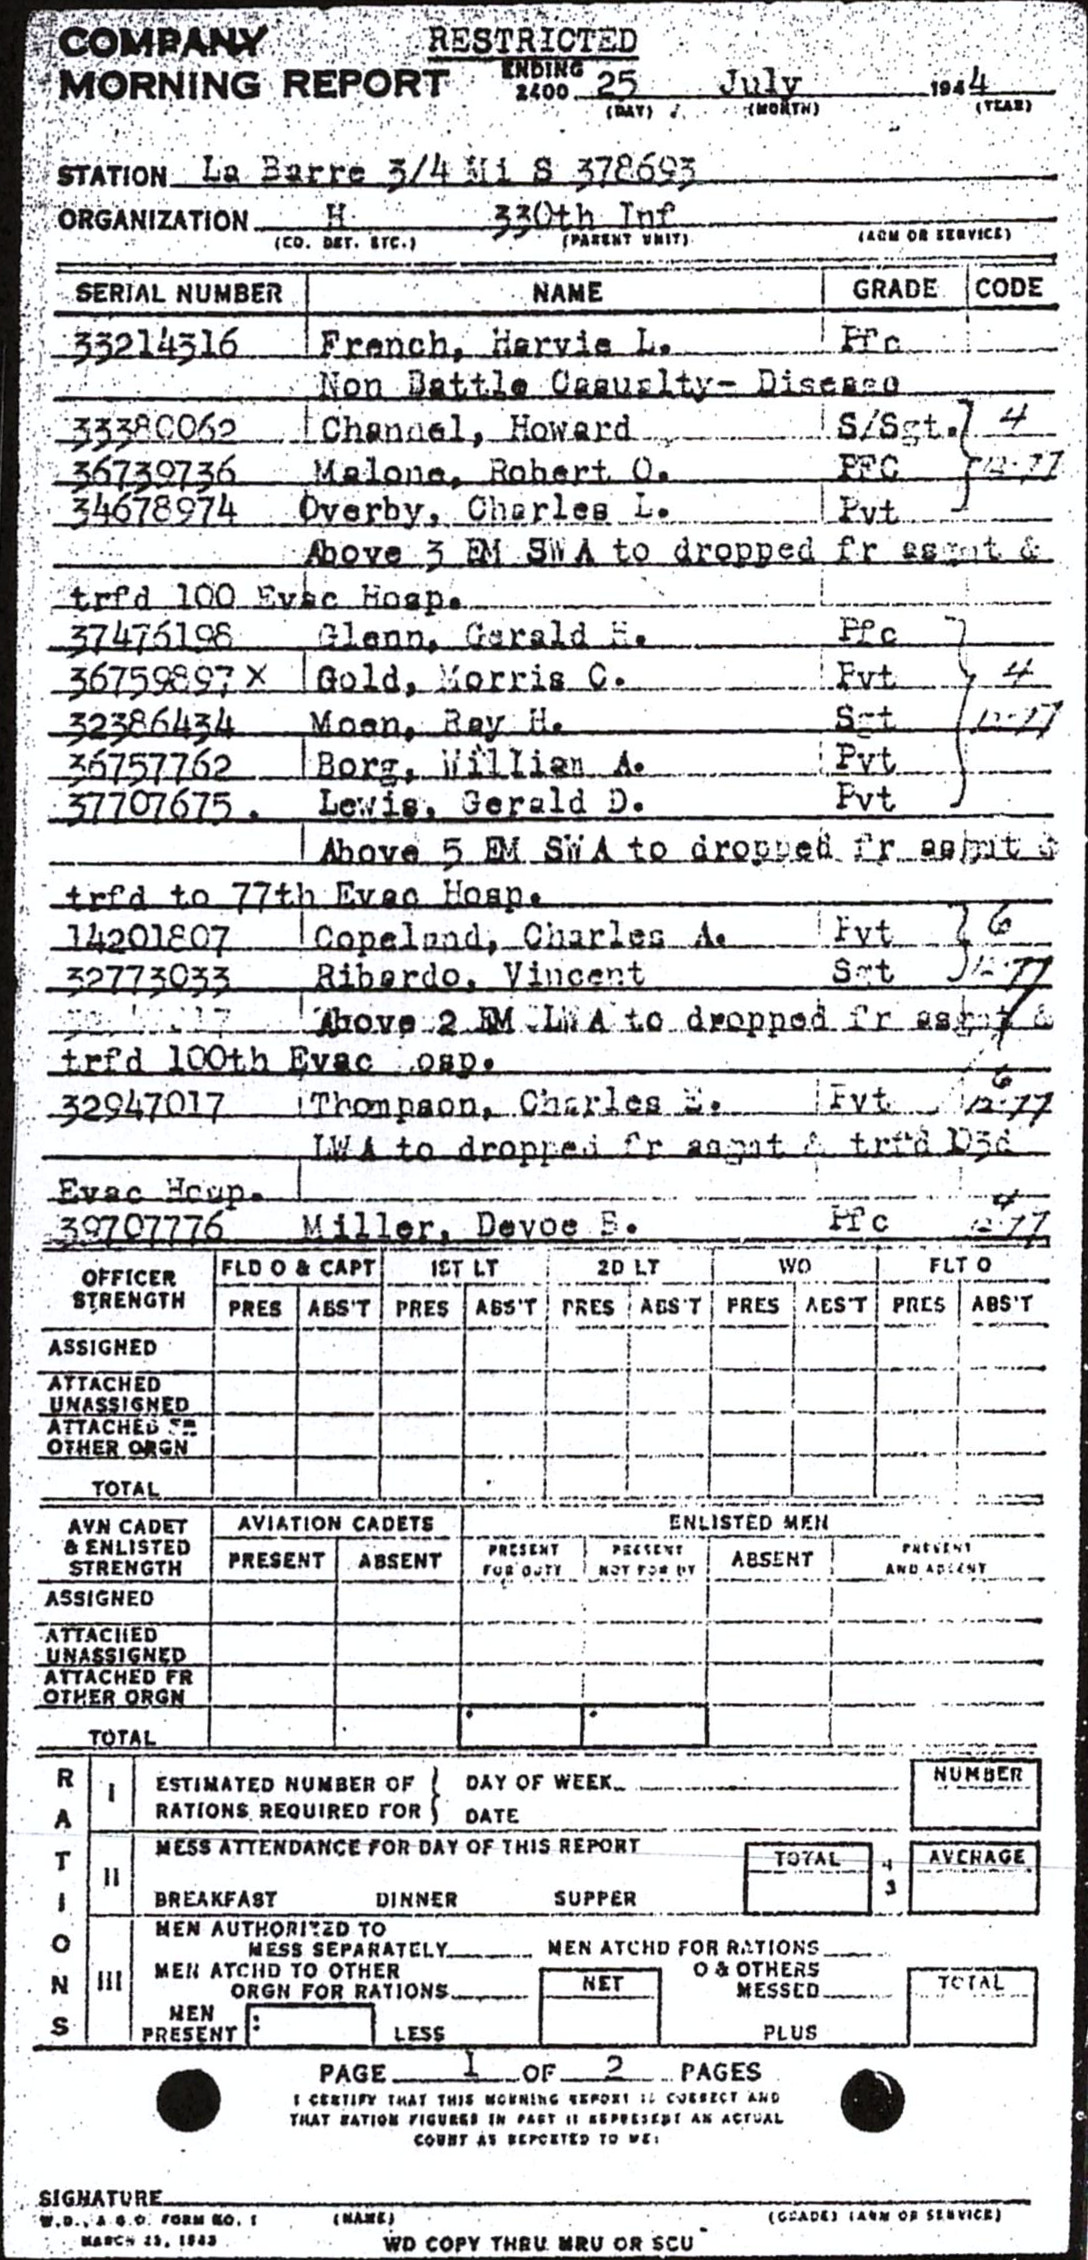 COMPANY RESTRICTED
MORNING REPORT ENDING 2400 25 July 1944
(DAY) (MONTH) (YEAR)
STATION La Barre 3/4 Mi S 378693
ORGANIZATION H 330th Inf
(CO. DET. ETC.) (PARENT UNIT) (ARM OR SERVICE)
SERIAL NUMBER NAME GRADE CODE
33214316 French, Harvie L. Pfc
Non Battle Casualty- Disease
33380062 Channel, Howard S/Sgt. 4
36739736 Malone, Robert O. PFC 12-77
34678974 Overby, Charles L. Pvt
Above 3 EM SWA to dropped fr asgmt &
trfd 100 Evac Hosp.
37476198 Glenn, Gerald H. Pfc
36759897 X Gold, Morris C. Pvt 4
32386434 Moen, Ray H. Sgt 12-77
36757762 Borg, William A. Pvt
37707675. Lewis, Gerald D. Pvt
Above 5 EM SWA to dropped fr asgmt &
trfd to 77th Evac Hosp.
14201807 Copeland, Charles A. Pvt 6
32773033 Ribardo, Vincent Sgt 12-77
Above 2 EM LWA to dropped fr asgmt &
trfd 100th Evac osp.
32947017 Thompson, Charles E. Pvt 6 12-77
LWA to dropped fr asgmt & trfd
Evac Hosp.
39707776 Miller, Devoe B. Pfc 4 12-77
OFFICER STRENGTH FLD O & CAPT 1ST LT 2D LT WO FLT O
PRES ABS'T PRES ABS'T PRES ABS'T PRES ABS'T PRES ABS'T
ASSIGNED
ATTACHED UNASSIGNED
ATTACHED FR OTHER ORGN
TOTAL
AVN CADET & ENLISTED STRENGTH AVIATION CADETS ENLISTED MEN
PRESENT ABSENT PRESENT FOR DUTY PRESENT NOT FOR DY ABSENT PRESENT AND ABSENT
ASSIGNED
ATTACHED UNASSIGNED
ATTACHED FR OTHER ORGN
TOTAL
RATIONS
I ESTIMATED NUMBER OF DAY OF WEEK NUMBER
RATIONS REQUIRED FOR DATE
II MESS ATTENDANCE FOR DAY OF THIS REPORT TOTAL 3 AVERAGE
BREAKFAST DINNER SUPPER
III MEN AUTHORIZED TO
MESS SEPARATELY MEN ATCHD FOR RATIONS
MEN ATCHD TO OTHER NET O & OTHERS TOTAL
ORGN FOR RATIONS MESSED
MEN PRESENT LESS PLUS
PAGE 1 OF 2 PAGES
I CERTIFY THAT THIS MORNING REPORT IS CORRECT AND
THAT RATION FIGURES IN PART II REPRESENT AN ACTUAL
COUNT AS REPORTED TO ME:
SIGNATURE
W.D., A.G.O. FORM NO. 1 (NAME) (GRADE) (ARM OR SERVICE)
MARCH 25, 1943 WD COPY THRU MRU OR SCU